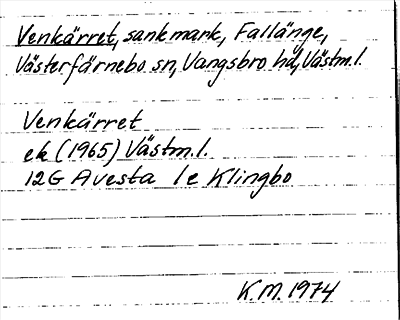 Venkärret, sankmark, Fallänge,
Västerfärnebo sn, Vangsbro hd, Västm.l.
Venkärret
ek (1965) Västm.l.
12G Avesta 1e Klingbo
K.M. 1974